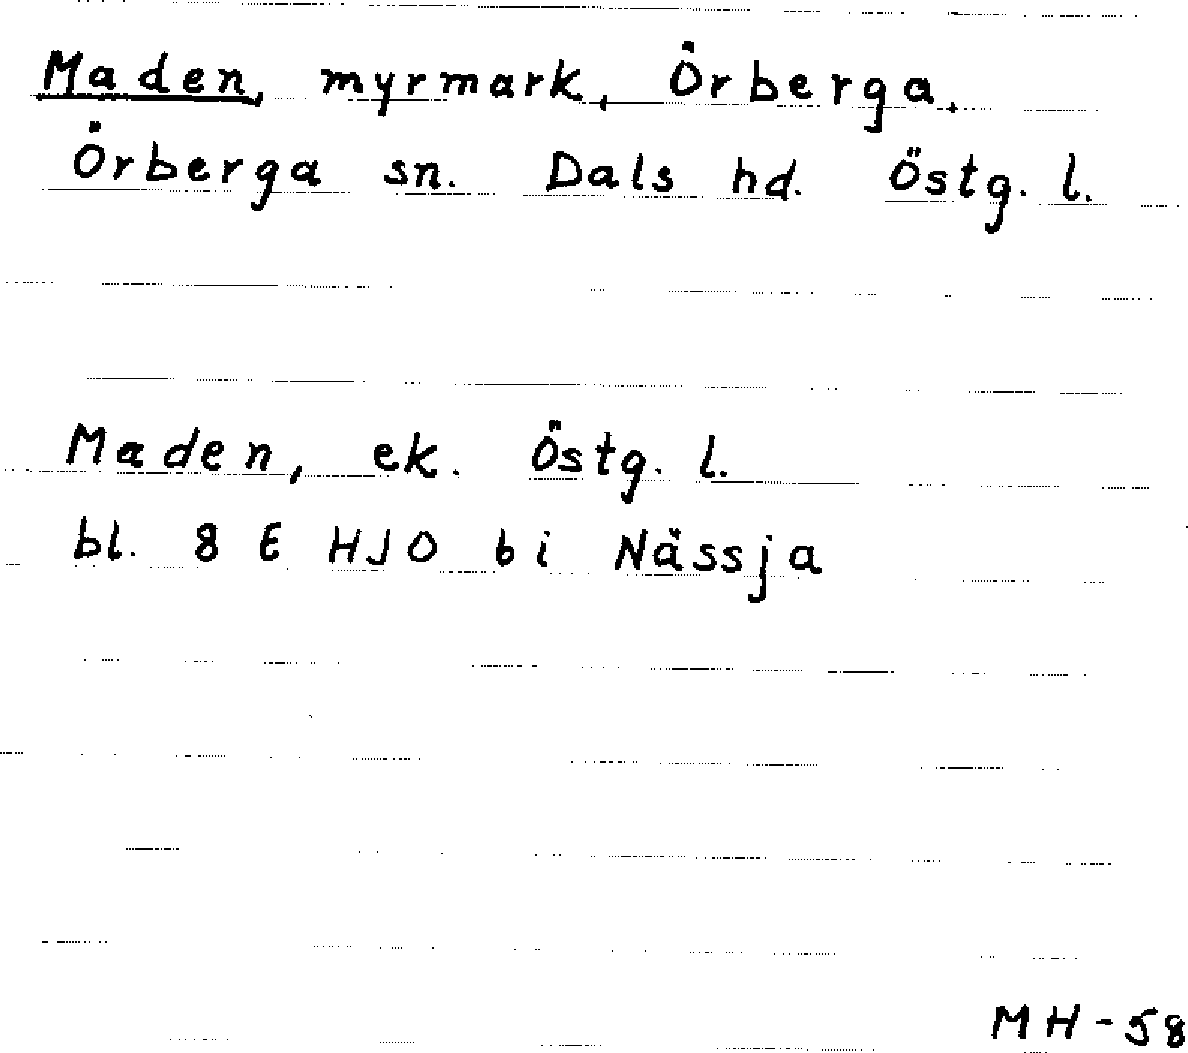 Maden, myrmark, Örberga.
Örberga sn. Dals hd. Östg. l.
Maden, ek. Östg. l.
bl. 8 E HJO bi Nässja
MH-58